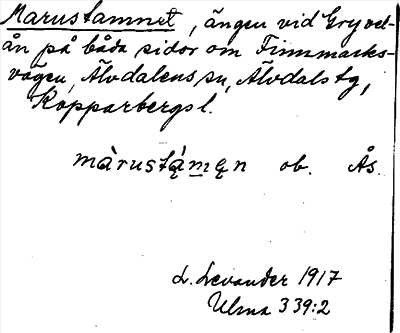 Marustamnet, ängen vid Gryvel-
ån på båda sidor om Finnmarks-
vägen, Älvdalens sn, Älvdals tg,
Kopparbergs l.
màrustą̀męn ob. Ås.
L. Levander 1917
Ulma 339:2